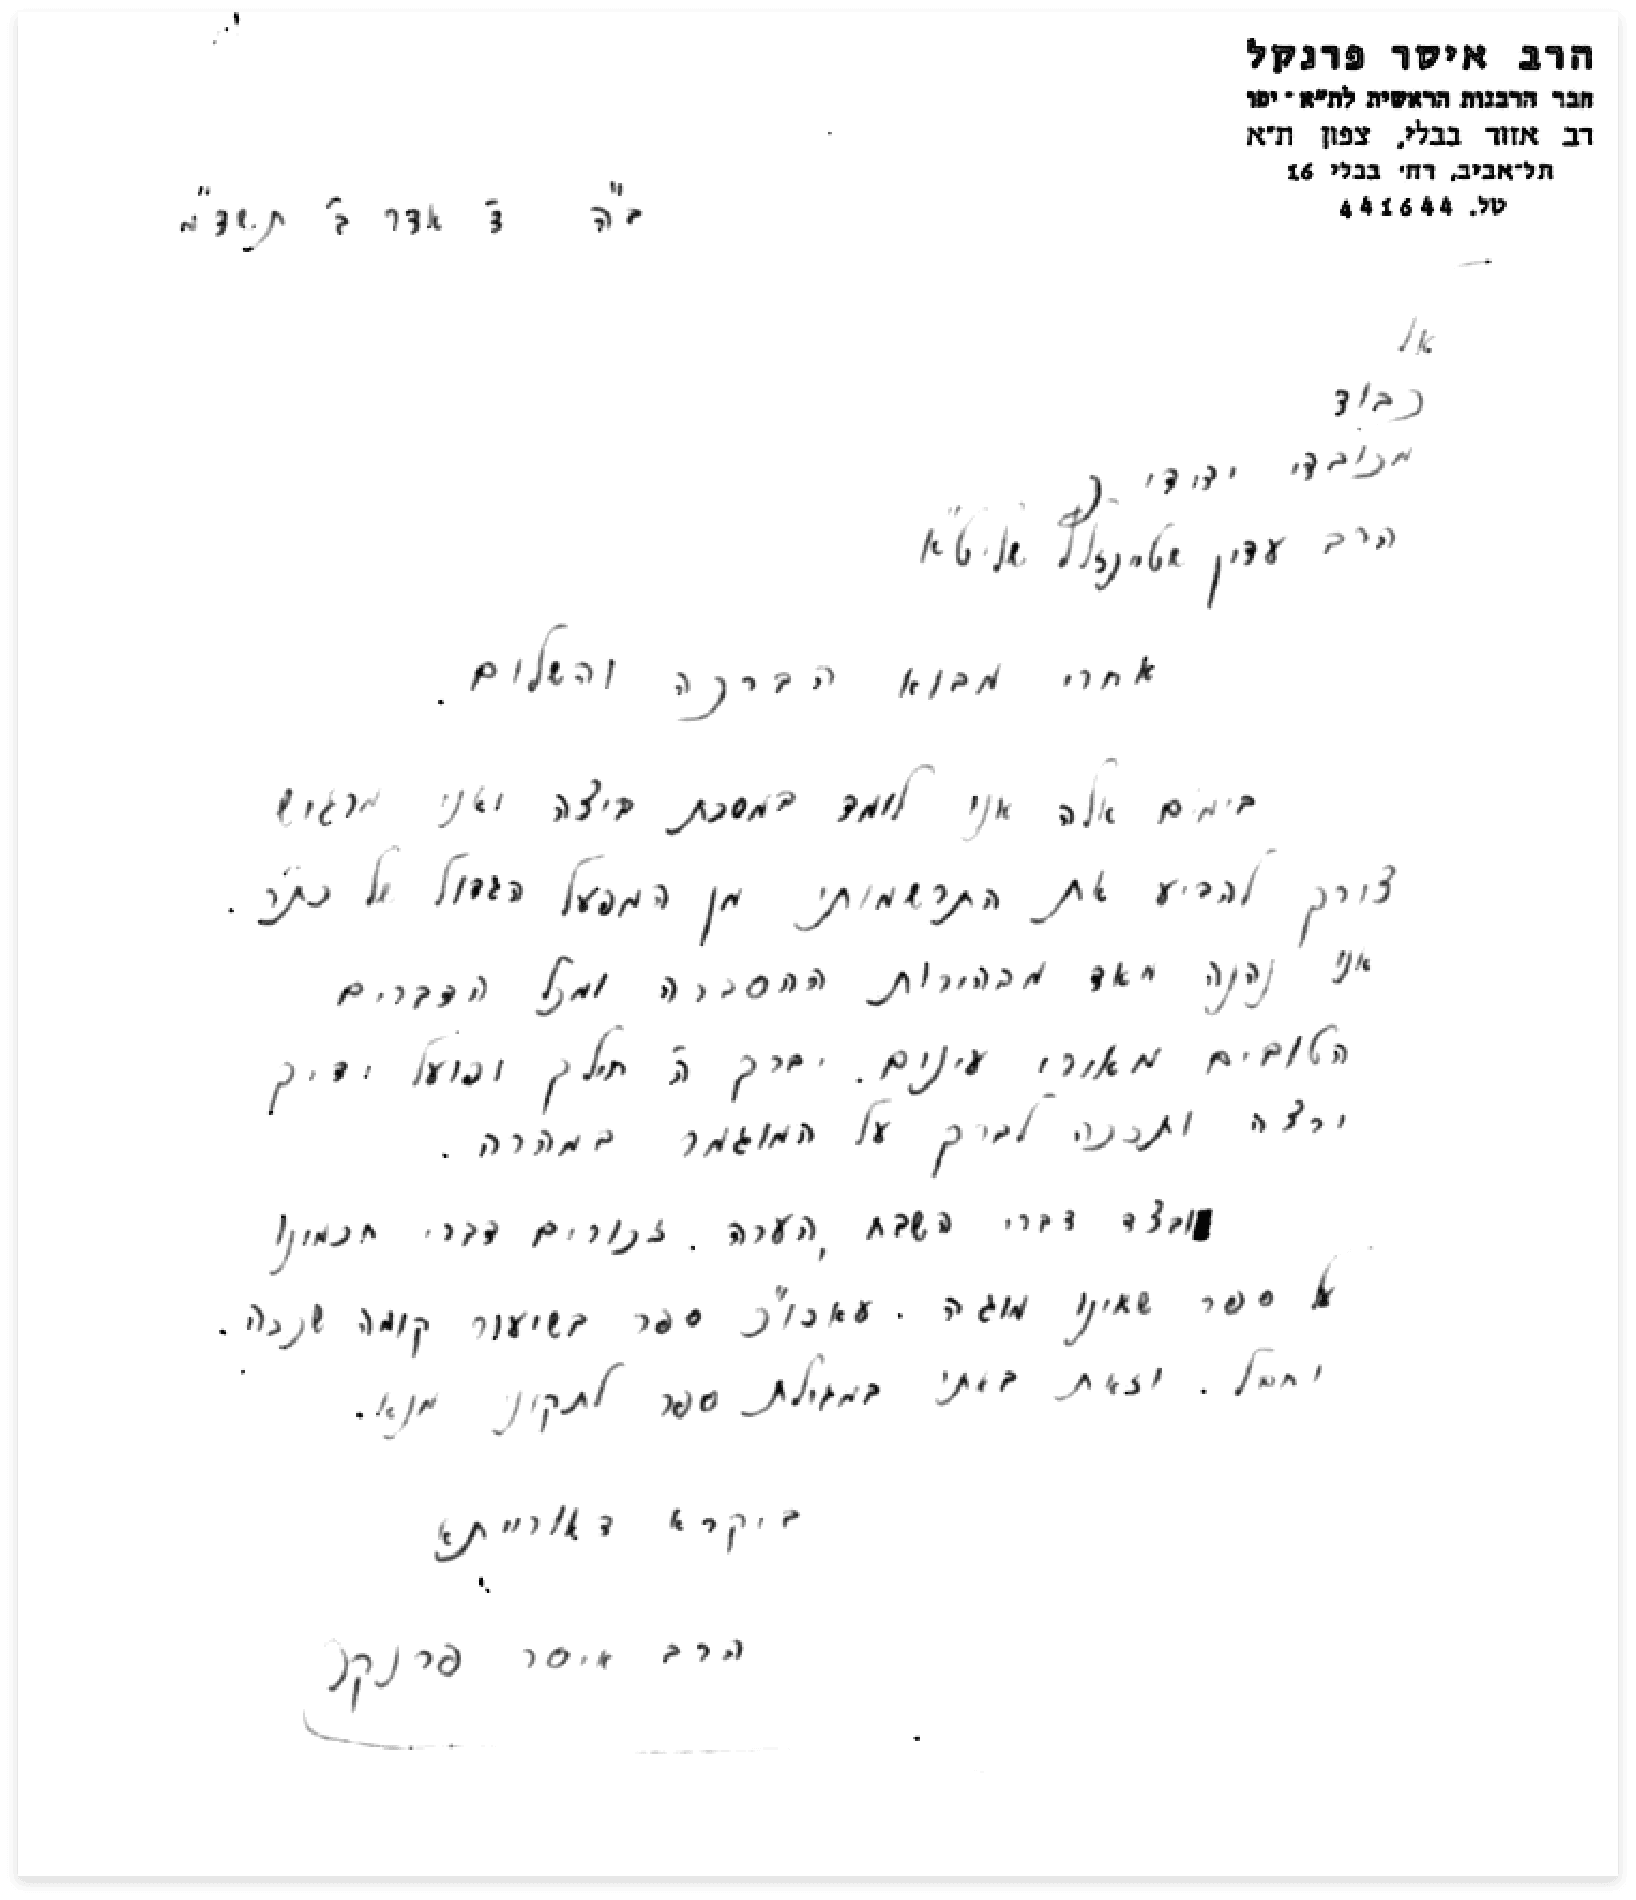 הרב איסר פרנקל
חבר הרבנות הראשית לת"א - יפו
רב אזור בבלי, צפון ת"א
תל־אביב, רח' בבלי 16
טל. 441644
ב"ה ד' אדר ב' תשד"מ
אל
כבוד
מכובדי ידידי
הרב עדין שטיינזלץ שליט"א
אחרי מבוא הברכה והשלום.
בימים אלה אני לומד במסכת ביצה ואני מרגיש
צורך להביע את התרשמותי מן המפעל הגדול של כת"ר.
אני נהנה מאד מבהירות ההסברה ומכל הדברים
הטובים מאירי עינים. יברך ה' חילך ופועל ידיך
ירצה ותזכה לברך על המוגמר במהרה.
ובצד דברי השבח, הערה. זכורים דברי חכמינו
על ספר שאינו מוגה. עאכו"כ ספר בשיעור קומה שכזה.
וחבל. וזאת באתי במגילת ספר לתקוני מנא.
ביקרא דאורייתא
הרב איסר פרנקל